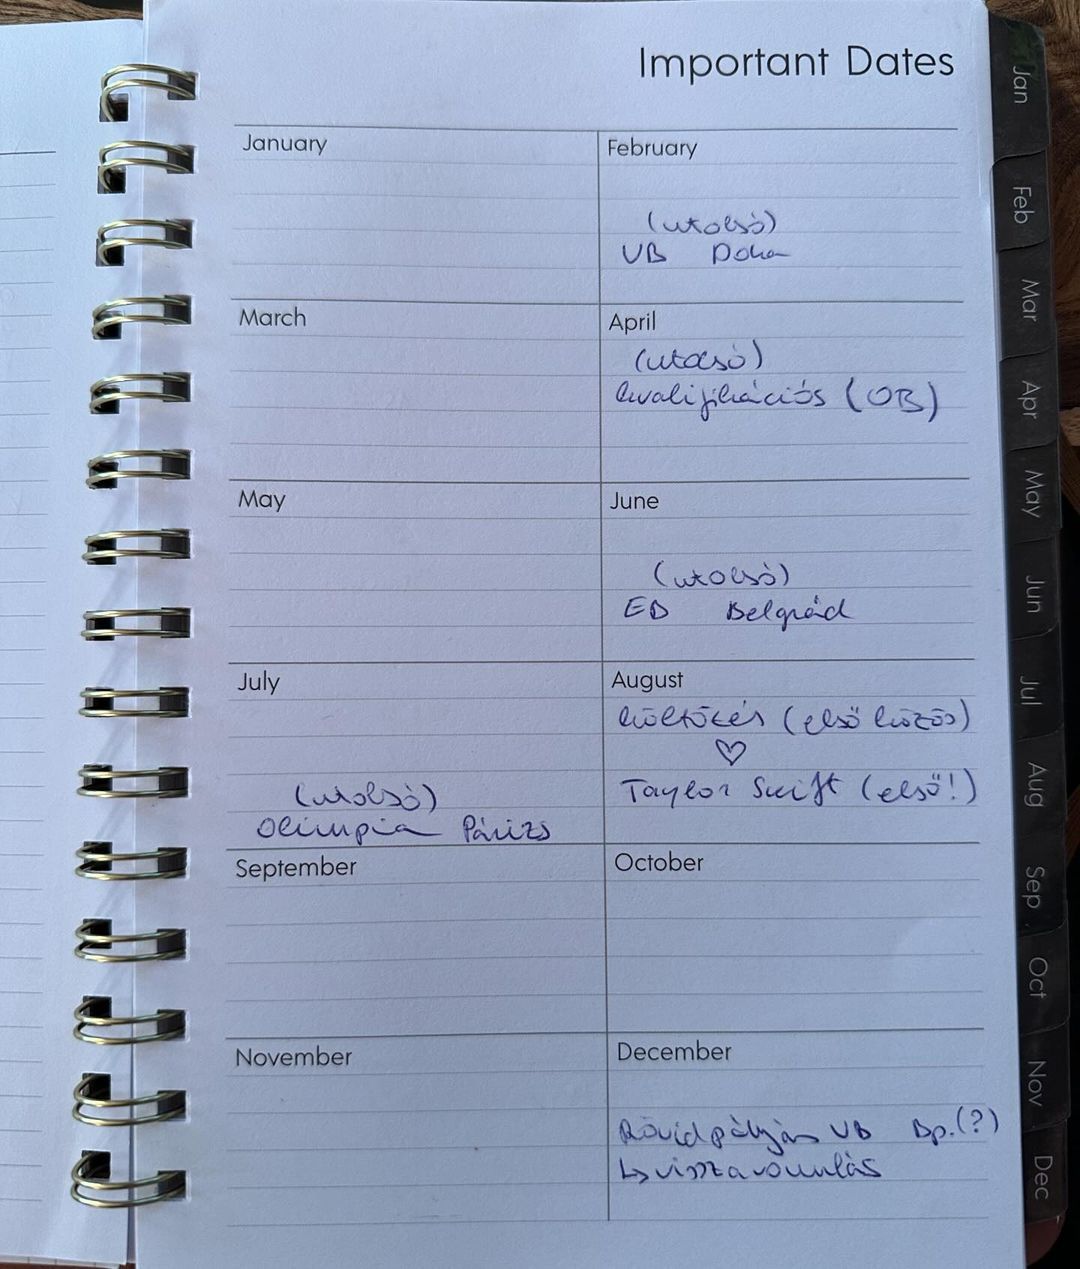 Important Dates
January
February
(utolsó)
VB Doha
March
April
(utolsó)
kvalifikációs (OB)
May
June
(utolsó)
EB Belgrád
July
(utolsó)
Olimpia Párizs
August
költözés (első közös)
♡
Taylor Swift (első!)
September
October
November
December
Rövidpályás VB Bp.(?)
↳ visszavonulás
Jan
Feb
Mar
Apr
May
Jun
Jul
Aug
Sep
Oct
Nov
Dec